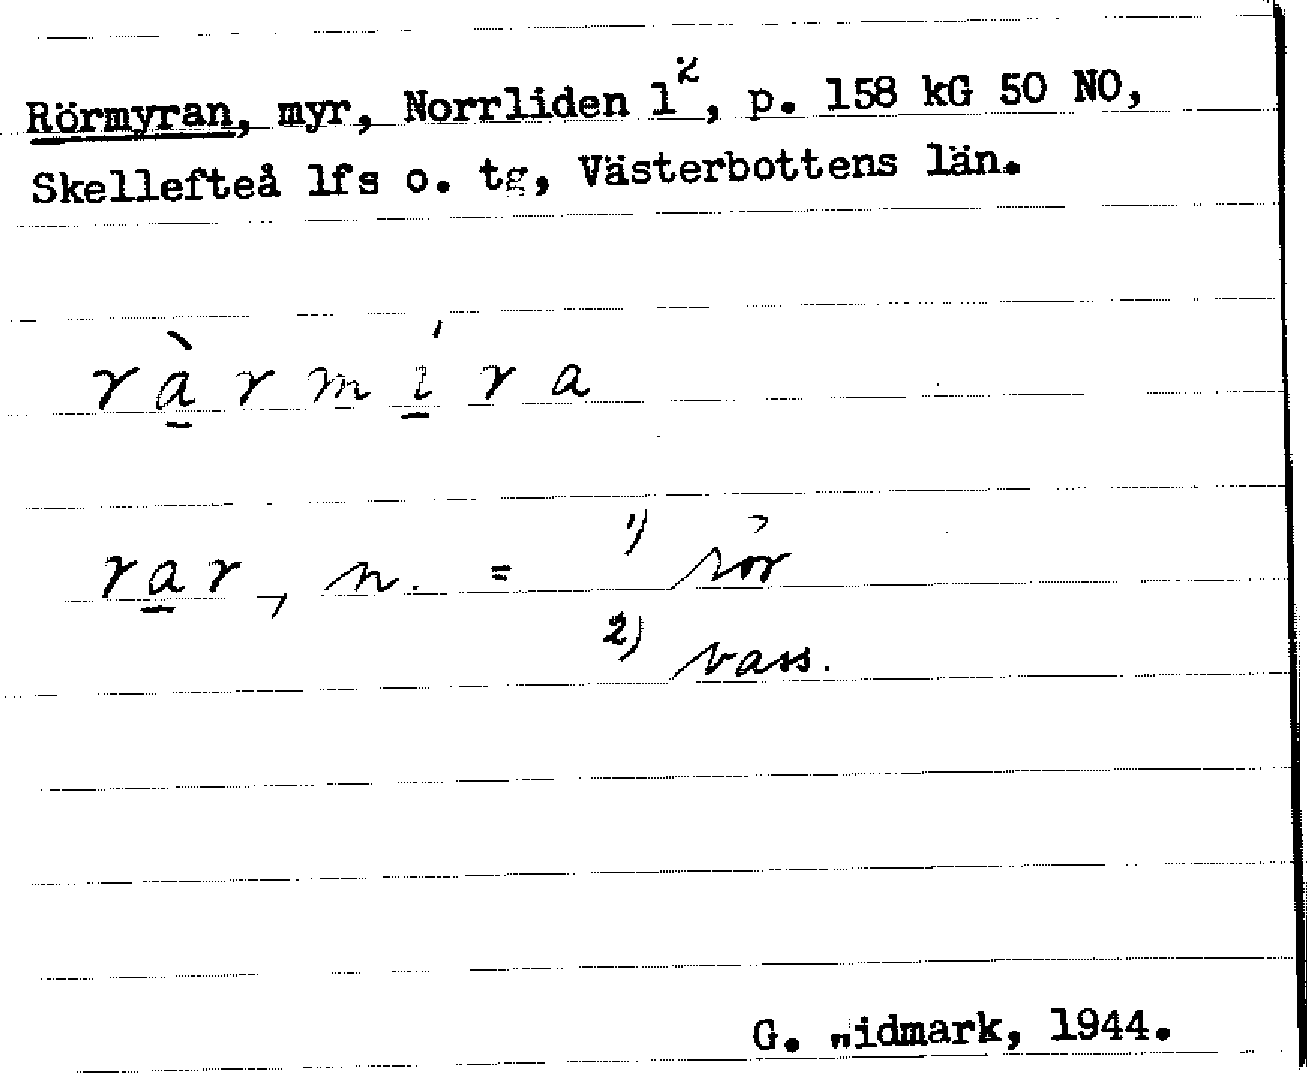 Rörmyran, myr, Norrliden 1², p. 158 kG 50 NO,
Skellefteå lfs o. tg, Västerbottens län.
rà̱rmí̱ra
ra̱r, n. = 1) rör
2) vass.
G. Widmark, 1944.